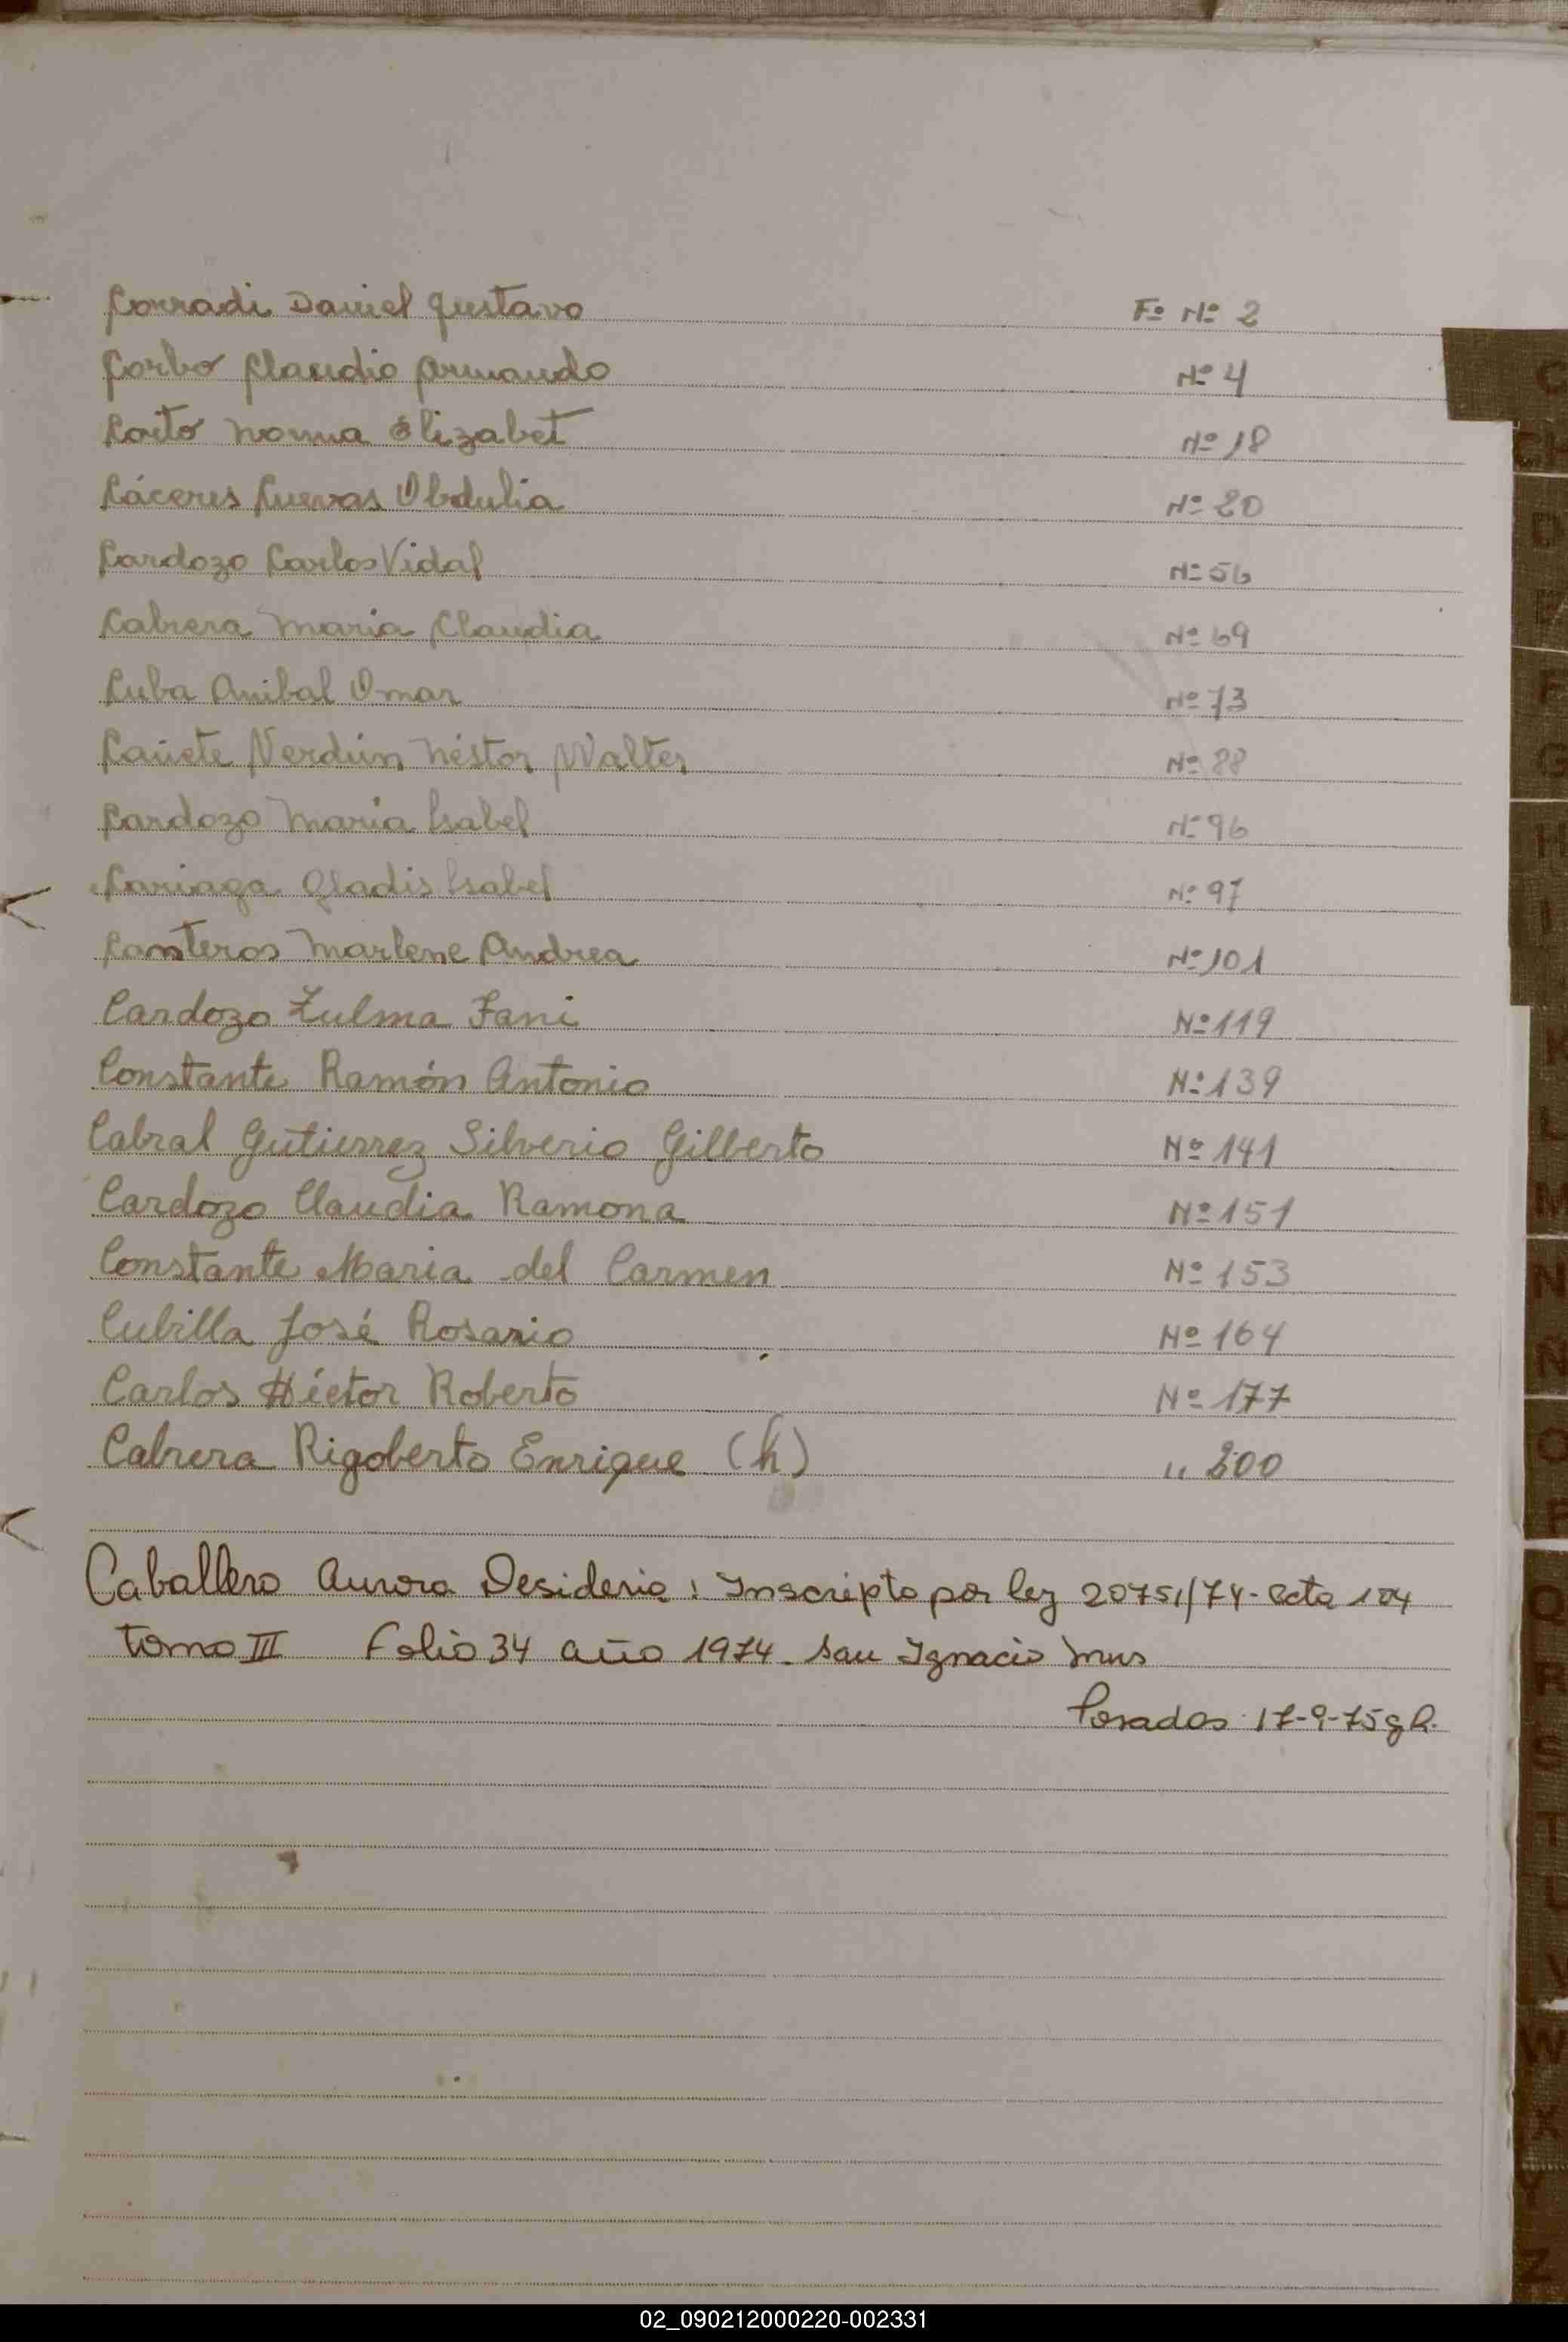 Corradi Daniel Gustavo Fº Nº 2
Corbo Claudio Armando Nº 4
Coito Norma Elizabet Nº 18
Cáceres Cuevas Obdulia Nº 20
Cardozo Carlos Vidal Nº 56
Cabrera Maria Claudia Nº 69
Cuba Anibal Omar Nº 73
Cañete Verdún Néstor Walter Nº 88
Cardozo Maria Isabel Nº 96
Cariaga Gladis Isabel Nº 97
Canteros Marlene Andrea Nº 101
Cardozo Zulma Fani Nº 119
Constante Ramón Antonio Nº 139
Cabral Gutierrez Silverio Gilberto Nº 141
Cardozo Claudia Ramona Nº 151
Constante Maria del Carmen Nº 153
Cubilla José Rosario Nº 164
Carlos Héctor Roberto Nº 177
Cabrera Rigoberto Enrique (h) " 200
Caballero Aurora Desideria: Inscripta por ley 20751/74 - acta 104
tomo III Folio 34 año 1974. San Ignacio Mns
Posadas 17-9-75
C
CH
D
E
F
G
H
I
K
L
M
N
Ñ
O
P
Q
R
S
T
U
V
W
X
Y
Z
02_090212000220-002331